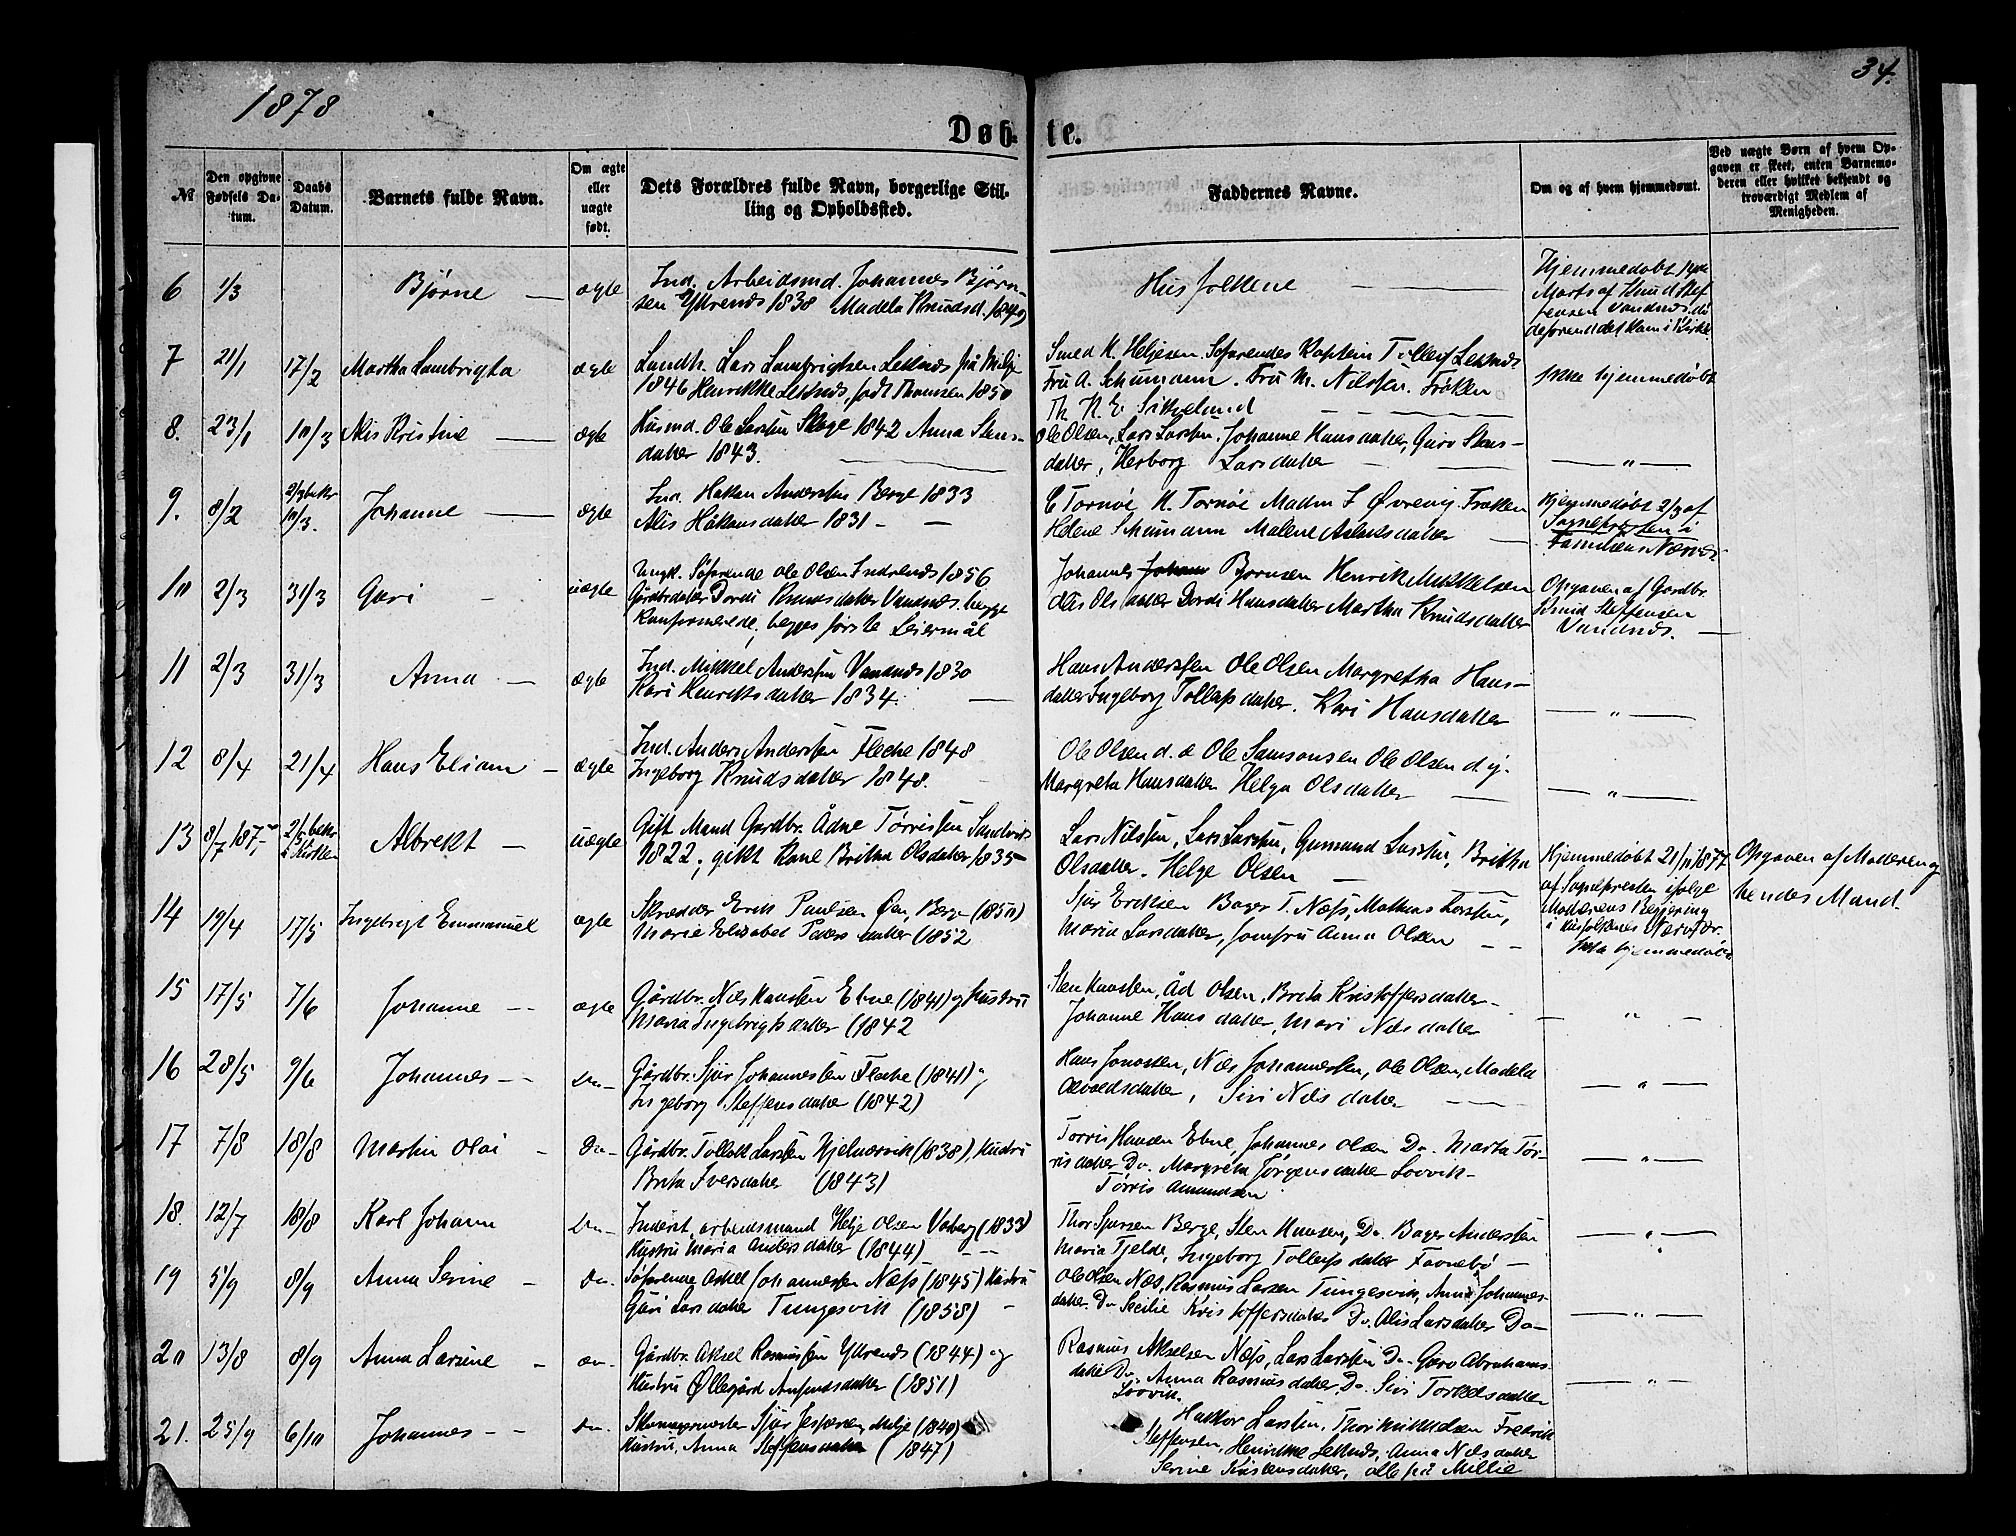 1878
34.
Døb- te.
№
Den opgivne Fødsels Da-tum.
Daabs Datum.
Barnets fulde Navn.
Om ægte eller uægte født.
Dets Forældres fulde Navn, borgerlige Stil-ling og Opholdssted.
Faddernes Navne.
Om og af hvem hjemmedøbt.
Ved uægte Børn af hvem Op-gaven er skeet, enten Barnemo-deren eller hvilket bekjendt og troværdigt Medlem af Menigheden.
6 1/3 Bjørne — ægte
Ind. Arbeidsmd. Johannes Bjørn-
sen Yttrenes 1838 Madela Knudsd. 1849
Husfolkene —
Hjemmedøbt
Marts af Knud Stef-
fensen Vandnes
7 21/1 17/2 Martha Lambrigta ægte
Landh. Lars Lambrigtsen Leknes på Milje
1846 Henrikke Leknes, født Thomsen 1850
Smed K. Heljesen. Søfarendes Kaptein Tollef Leknes
Fru A. Schumann. Fru M. Nilssen. Frøken
Th. K. E. Sikveland
ikke hjemmedøbt
8. 23/1 10/3 Alis Kristine — ægte
Husmd. Ole Larssen Skoge 1842 Anna Stens-
datter 1843.
Ole Olsen, Lars Larssen, Johanne Hansdatter, Guro Stens-
datter, Herborg Larsdatter —
— " —
9. 8/2 2/3 bekr 10/3. Johanne — ægte
Ind. Hakan Anderssen Berge 1833
Alis Håkansdatter 1831 — —
E Tornøe K. Tornøe Madm I Øvrevig Frøken
Helene Schumann Malene Askelsdatter —
Hjemmedøbt 2/3 af
Sognepresten i
Familiens Nærvær
10 2/3 31/3 Gari - uægte
Ungk. Søfarende Ole Olsen Indrenes 1856
Gårdbrdatter Dordi Knudsdatter Vandnes, begge
Konfirmerede, begges første Leiermål
Johannes Bjørnsen Henrik Mikkelsen
Alis Olsdatter Dordi Hansdatter Martha Knudsdatter
Opgaven af Gårdbr.
Knud Steffensen
Vandnes. —
11 2/3 31/3 Anna — ægte
Ind. Mikkel Anderssen Vandnes 1830
Kari Henriksdatter 1834. —
Hans Anderssen Ole Olsen Margretha Hans-
datter Ingeborg Tollefsdatter. Kari Hansdatter
— " —
12 8/4 21/4 Hans Eliam — ægte
Ind. Anders Anderssen Fleche 1848
Ingeborg Knudsdatter 1848.
Ole Olsen d. æ Ole Samsonsen Ole Olsen d. y.
Margreta Hansdatter Helga Olsdatter —
— " —
13 8/7 187 2/5 bekr i Kirken Albrekt — uægte
Gift Mand Gårdbr. Ådne Tørrissen Sandvik
1822, gift Kone Britha Olsdatter 1835
Lars Nilssen, Lars Larssen, Gunmund Larssen, Britha
Olsdatter. Helge Olsen —
Hjemmedøbt 21/11 1877
af Sognepresten ifølge
Moderens Begjæring
i Husfolkenes Nærvær.
Opgaven af Moderen og
hendes Mand.
14 19/4 17/5 Ingebrigt Emmanuel ægte
Skrædder Erik Paulsen Øen, Berge (1850)
Marie Elisabet Pedersdatter (1852
Sjur Eriksen Bager T. Næss, Mathias Larssen,
Maria Larsdatter, Jomfru Anna Olsen — —
Ikke hjemmedøbt
15 17/5 7/6 Johanne -- ægte
Gårdbr. Nils Hanssen Ebne (1841) og Hustru
Maria Ingebrigtsdatter (1842
Sten Hanssen, Åd Olsen, Brita Kristoffersdatter
Johanne Hansdatter, Mari Nilsdatter
— " —
16 28/5 9/6 Johannes -- Do-
Gårdbr. Sjur Johannessen Fleche (1841) og
Ingeborg Steffensdatter (1842)
Hans Jonassen, Nils Johannessen, Ole Olsen, Madela
Siri Nilsdatter
— " —
17 7/8 18/8 Martin Olai - Do-
Gårdbr. Tollak Larssen Hjelmervik (1838), Hustru
Brita Iversdatter (1843)
Tørris Hansen Ebne, Johannes Olsen Do. Marta Tør-
risdatter Do. Margreta Jørgensdatter Lovvik-
Tørris Amundsen
— " —
18. 12/7 18/8 Karl Johann Do-
Inderst, arbeidsmand Helje Olsen Vaberg (1833)
Hustru Maria Andersdatter (1844) — —
Thor Sjursen Berge, Sten Hansen, Do. Bager Anderssen
Maria Tjelde, Ingeborg Tollefsdatter Favnebø —
— " —
19 5/9 8/9 Anna Serine - Do-
Søfarende Askel Johannessen Næss (1845) Hustru
Guri Larsdatter Tungesvik (1858) -
Ole Olsen Næs, Rasmus Larsen Tungesvik, Anna Johannes-
datter Do Secilie Kristoffersdatter Do. Alis Larsdatter Do-
— " —
20 13/8 8/9 Anna Larsine -
Gårdbr. Aksel Rasmussen Yttrenes (1844) og
Hustru Øllegård Amundsdatter (1851)
Rasmus Akselsen Næss, Lars Larssen Do- Guro Abrahams-
datter Do. Anna Rasmusdatter Do. Siri Torkelsdatter
Lovvik.
— " —
21. 25/9 6/10 Johannes -- Do-
Skomagermester Sjur Jespersen, Milje (1840)
Hustru, Anna Steffensdatter (1847)
Halvor Larssen, Thor Mikkelsen Fredrik
Steffensen, Henrikke Leknes, Anna Nilsdatter
Serine Kristensdatter, alle på Millie